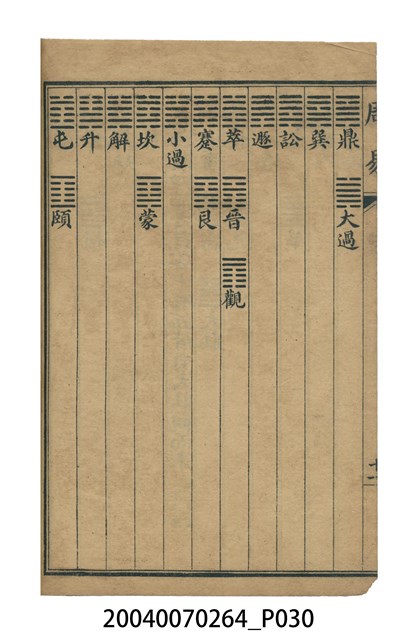 周易
鼎 大過
巽
訟
遯
萃 晉 觀
蹇 艮
小過
坎 蒙
解
升
屯 頤
20040070264_P030